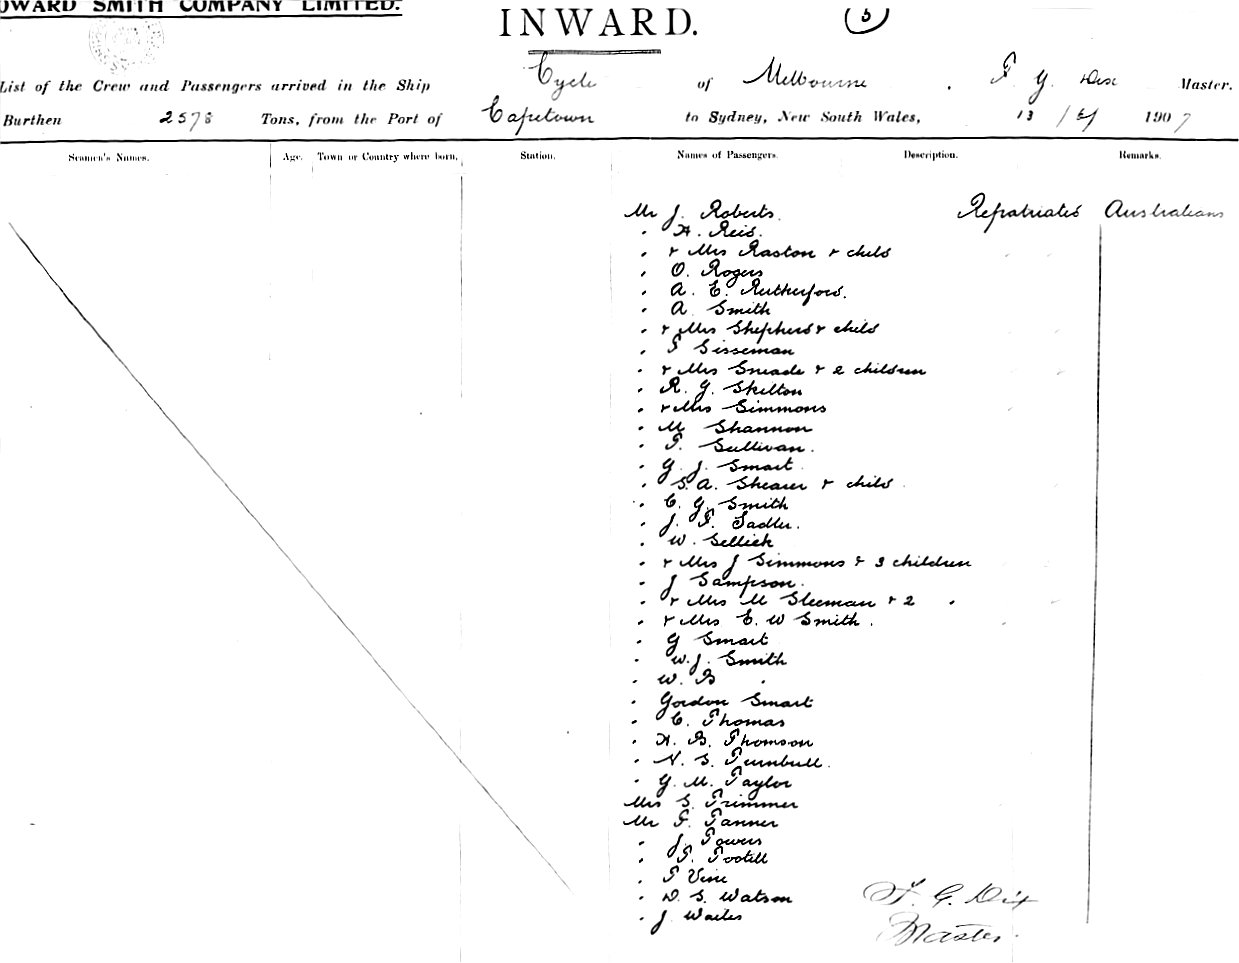 OWARD SMITH COMPANY LIMITED.
INWARD. 5
List of the Crew and Passengers arrived in the Ship Cycle of Melbourne. F G Dix Master.
Burthen 2578 Tons, from the Port of Capetown to Sydney, New South Wales, 13/ 1907
Seamen's Names. Age. Town or Country where born. Station. Names of Passengers. Description. Remarks.
Mr J. Roberts. Repatriated Australians
" H. Reid.
" & Mrs Raston & child
" O. Rogers
" A. E. Rutherford.
" A Smith
" & Mrs Shepherd & child
" Sisseman
" & Mrs Sneade & 2 children
" R. G. Skelton
" & Mrs Simmons
" M Shannon
" T. Sullivan.
" G J. Smart
" S. A. Shearer & child
" C. G. Smith
" J. F. Sadler.
" W. Sellick
" & Mrs J Simmons & 3 children
" J Sampson.
" & Mrs M Sleeman & 2 "
" & Mrs E. W Smith.
" G Smart
" W. J. Smith
" W. B "
" Gordon Smart
" C. Thomas
" H. B. Thomson
" N. S. Turnbull.
" G. M. Taylor
Mrs S. Trimmer
Mr F. Tanner
" J. Towers
" T. Tootill
" Vine
" D. S. Watson F. G. Dix
" J Wailes Master.